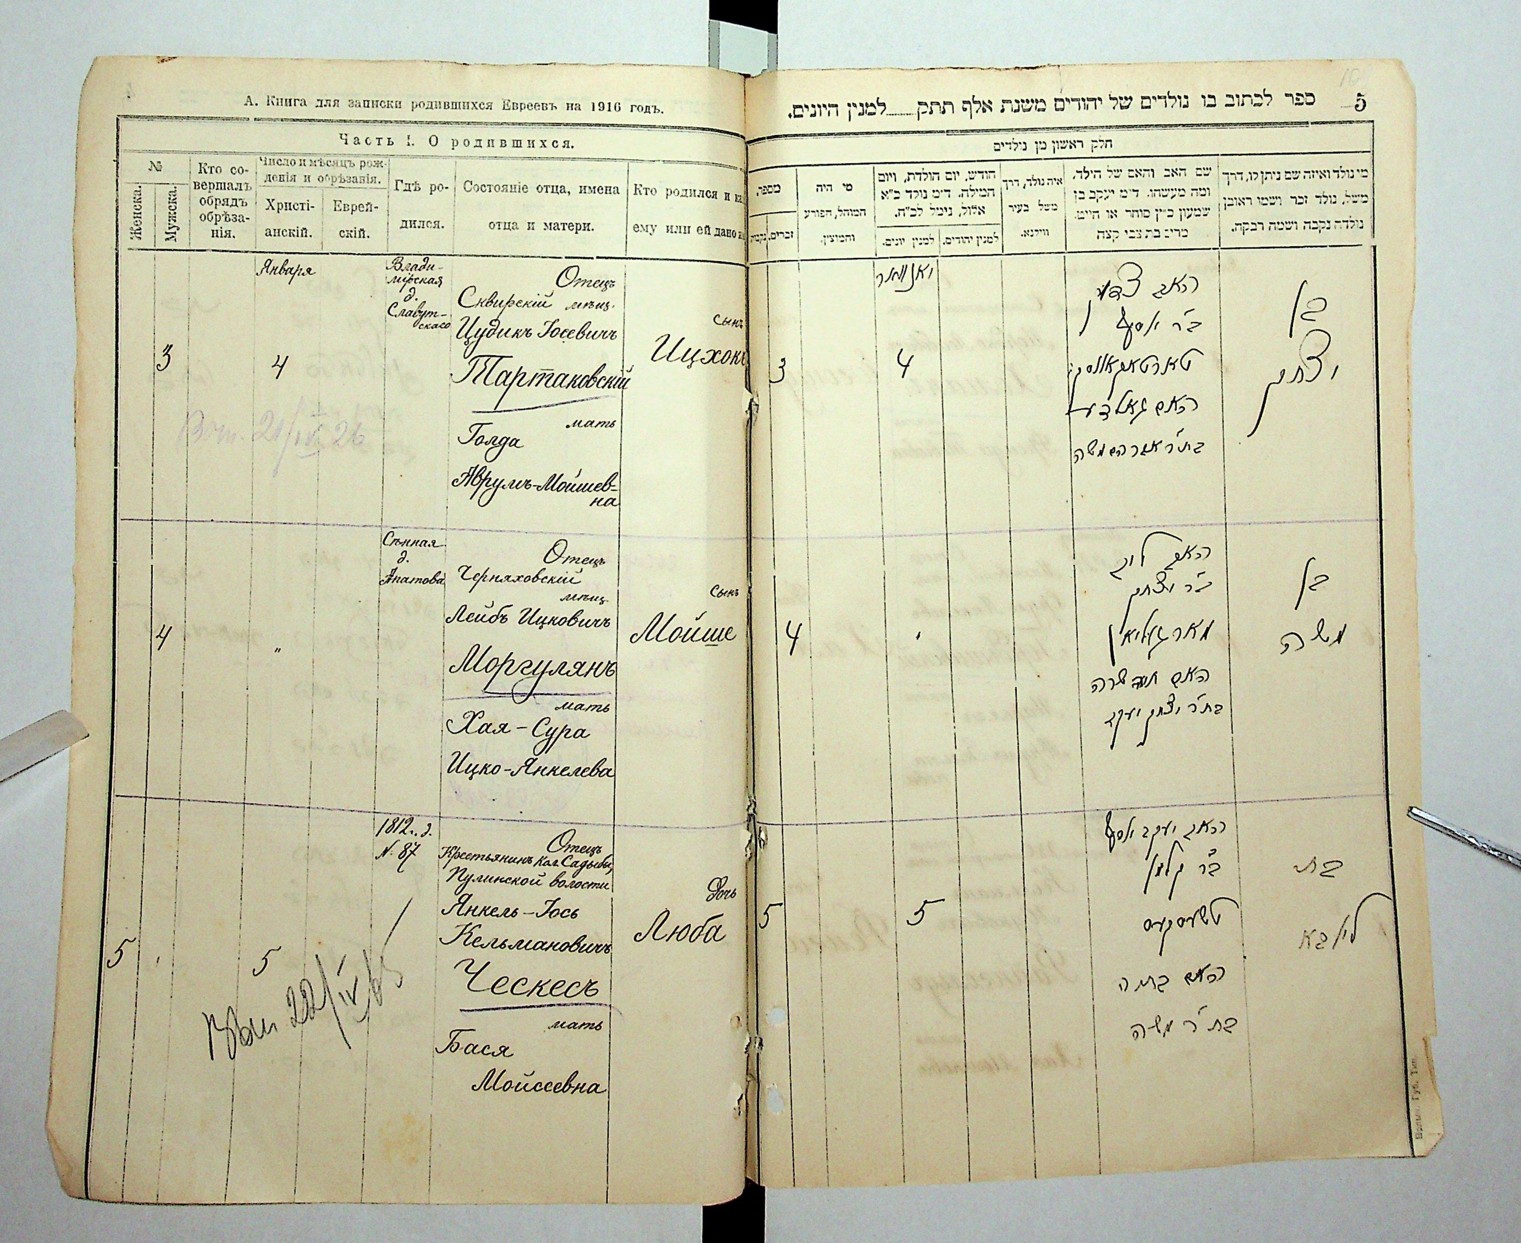 А. Книга для записки родившихся Евреевъ на 1916 годъ.
Часть I. О родившихся.
№
Женска.
Мужска.
Кто со-
вершалъ
обрядъ
обрѣза-
нія.
Число и мѣсяцъ рож-
денія и обрѣзанія.
Христі-
анскій.
Еврей-
скій.
Гдѣ ро-
дился.
Состояніе отца, имена
отца и матери.
Кто родился и ка
ему или ей дано и
3
Января
4
Влади-
мірская
д.
Славут-
скаго
Отецъ
Сквирскій мѣщ.
Цудикъ Іосевичъ
Тартаковскій
мать
Голда
Аврумъ-Мойшев-
на
сынъ
Ицхокъ
21/IV 26
4
"
Сѣнная
д.
Отецъ
Черняховскій
мѣщ.
Лейбъ Ицковичъ
Моргулянъ
мать
Хая-Сура
Ицко-Янкелева
сынъ
Мойше
5
5
1812 г. д.
№ 87
Отецъ
Крестьянинъ кол. Садыбы,
Пулинской волости
Янкель-Іось
Кельмановичъ
Ческесъ
мать
Бася
Мойсеевна
дочь
Люба
ספר לכתוב בו נולדים של יהודים משנת אלף תתק........למנין היונים.
5
חלק ראשון מן נולדים
מספר,
נקבה
זכרים.
מי היה
המוהל, הפורע
והמוצץ.
חודש, יום הולדת, ויום
המילה. ד״מ נולד כ״א
אלול, נימל לכ״ח.
למנין יונים.
למנין יהודים.
איה נולד, דרך
משל בעיר
ווילנא.
שם האב והאם של הילד.
ומה מעשהו. ד״מ יעקב בן
שמעון כ״ץ סוחר או חייט.
מרים בת צבי קצה
מי נולד ואיזה שם ניתן לו, דרך
משל, נולד זכר ושמו ראובן
נולדה נקבה ושמה רבקה.
3
יאנוואר
4
האב
ב״ר יוסף
טארטאקאווסקי
האם גאלדע
בת ר׳ אברהם משה
בן
יצחק
4
האב ליב
ב״ר יצחק
מארגוליאן
האם חיה שרה
בת ר׳ יצחק יעקב
בן
משה
5
5
האב יעקב יוסף
ב״ר קלמן
טשעסקעס
האם בתיה
בת ר׳ משה
בת
ליובא
Волын. Губ. Тип.